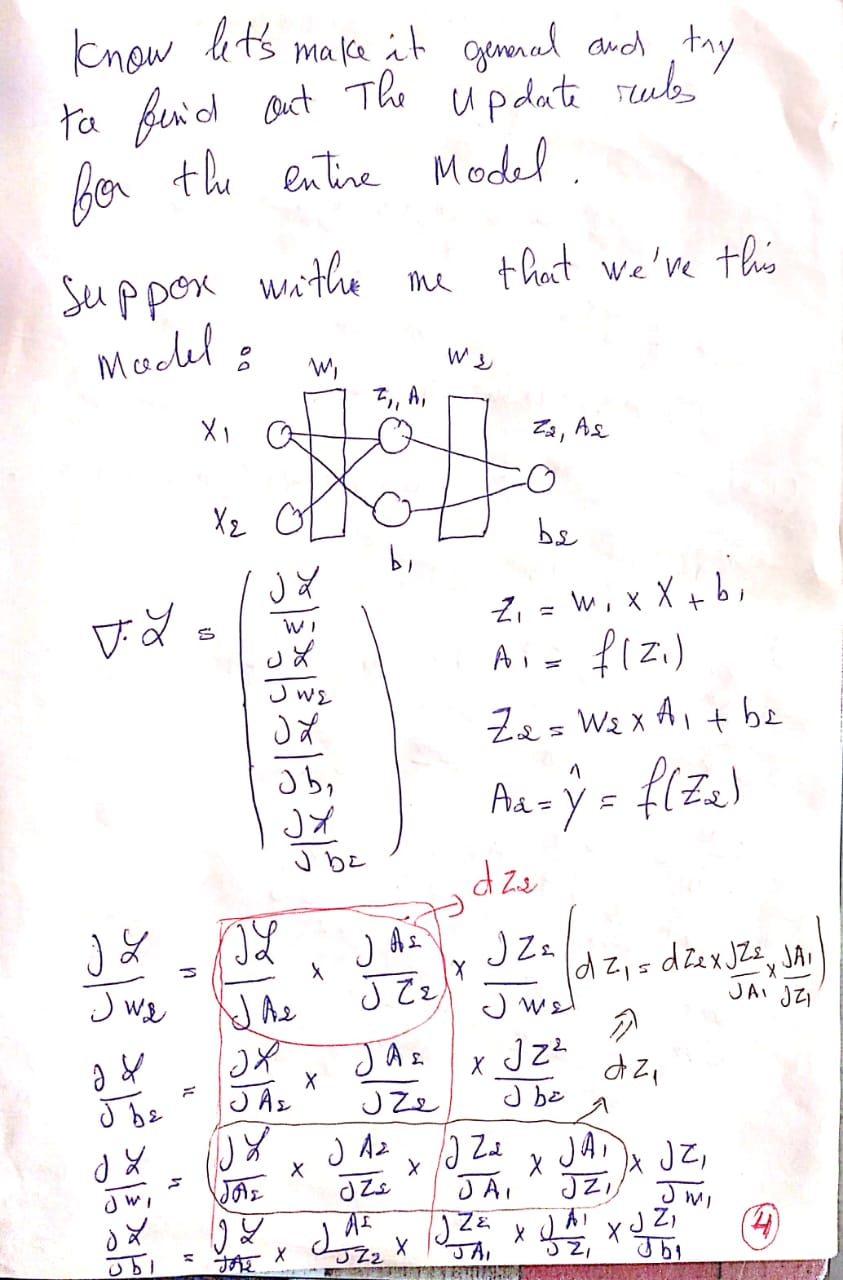 Know let's make it general and try
to find out The update rules
for the entire Model.
Suppose withe me that we've this
Model :
W₁ W₂
Z₁, A₁
X₁ Z₂, A₂
X₂ b₂
b₁
∇·ℒ = ( ∂ℒ/W₁
∂ℒ/∂W₂
∂ℒ/∂b₁
∂ℒ/∂b₂ )
Z₁ = W₁ × X + b₁
A₁ = f(Z₁)
Z₂ = W₂ × A₁ + b₂
A₂ = ŷ = f(Z₂)
→ dZ₂
∂ℒ/∂W₂ = ∂ℒ/∂A₂ × ∂A₂/∂Z₂ × ∂Z₂/∂W₂ | dZ₁ = dZ₂ × ∂Z₂/∂A₁ × ∂A₁/∂Z₁ )
∂ℒ/∂b₂ = ∂ℒ/∂A₂ × ∂A₂/∂Z₂ × ∂Z²/∂b₂
⇒ dZ₁
∂ℒ/∂W₁ = ∂ℒ/∂A₂ × ∂A₂/∂Z₂ × ∂Z₂/∂A₁ × ∂A₁/∂Z₁ × ∂Z₁/∂W₁
∂ℒ/∂b₁ = ∂ℒ/∂A₂ × ∂A₂/∂Z₂ × ∂Z₂/∂A₁ × ∂A₁/∂Z₁ × ∂Z₁/∂b₁
4